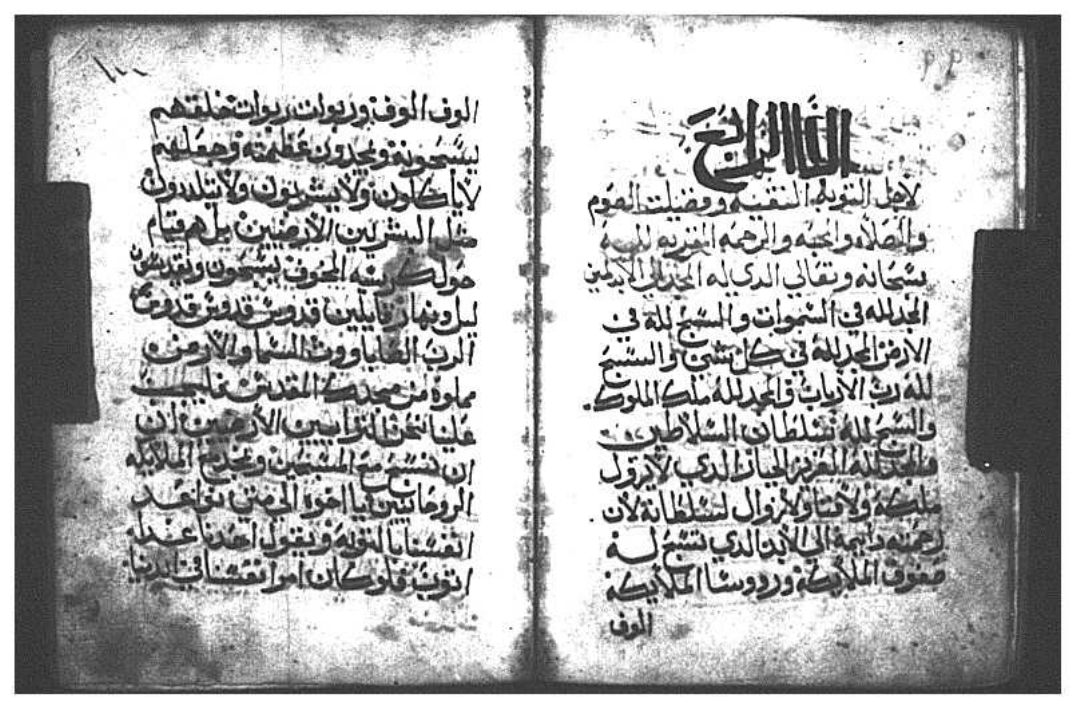 الباب الرابع
لاجل التوبة النقية وفضيلت الصوم
والصلاه والمحبه والرحمه المقربه لله
سبحانه وتعالي الذي له المجد الي الابد امين
المجد لله في السموات والسبح لله في
الارض المجد لله في كل شي والسبح
لله رب الارباب والمجد لله ملك الملوك
والسبح لله سلطان السلاطين
والمجد لله العزيز الجبار الذي لا يزول
ملكه ولا فنا ولا زوال لسلطانه لان
رحمته دايمة الي الابد الذي تسبح له
صفوف الملايكة وروسا الملايكة
الوف
الوف الوف وربوات ربوات خلقهم
يسبحونه ويمجدون عظمته وجعلهم
لا ياكلون ولا يشربون ولا يتلدون
مثل البشريين الارضيين بل هم قيام
حول كرسيه المخوف يسبحون ويقدسون
ليل ونهار قايلين قدوس قدوس قدوس
الرب الصاباووت السما والارض
مملوة من مجدك المقدس فايجب
علينا نحن الترابيين الارضيين ان
ان نسبح مع المسبحين ونمجد مع الملايكه
الروحانيين يا اخوة الي متي نواعد
انفسنا بالتوبه ويقول احدنا غدا
اتوب فلو كان امر انفسنا في ايدينا